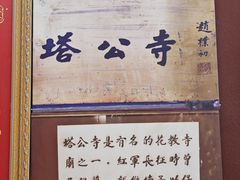 塔公寺
趙樸初
塔公寺是有名的花教寺
廟之一。紅軍長征時曾